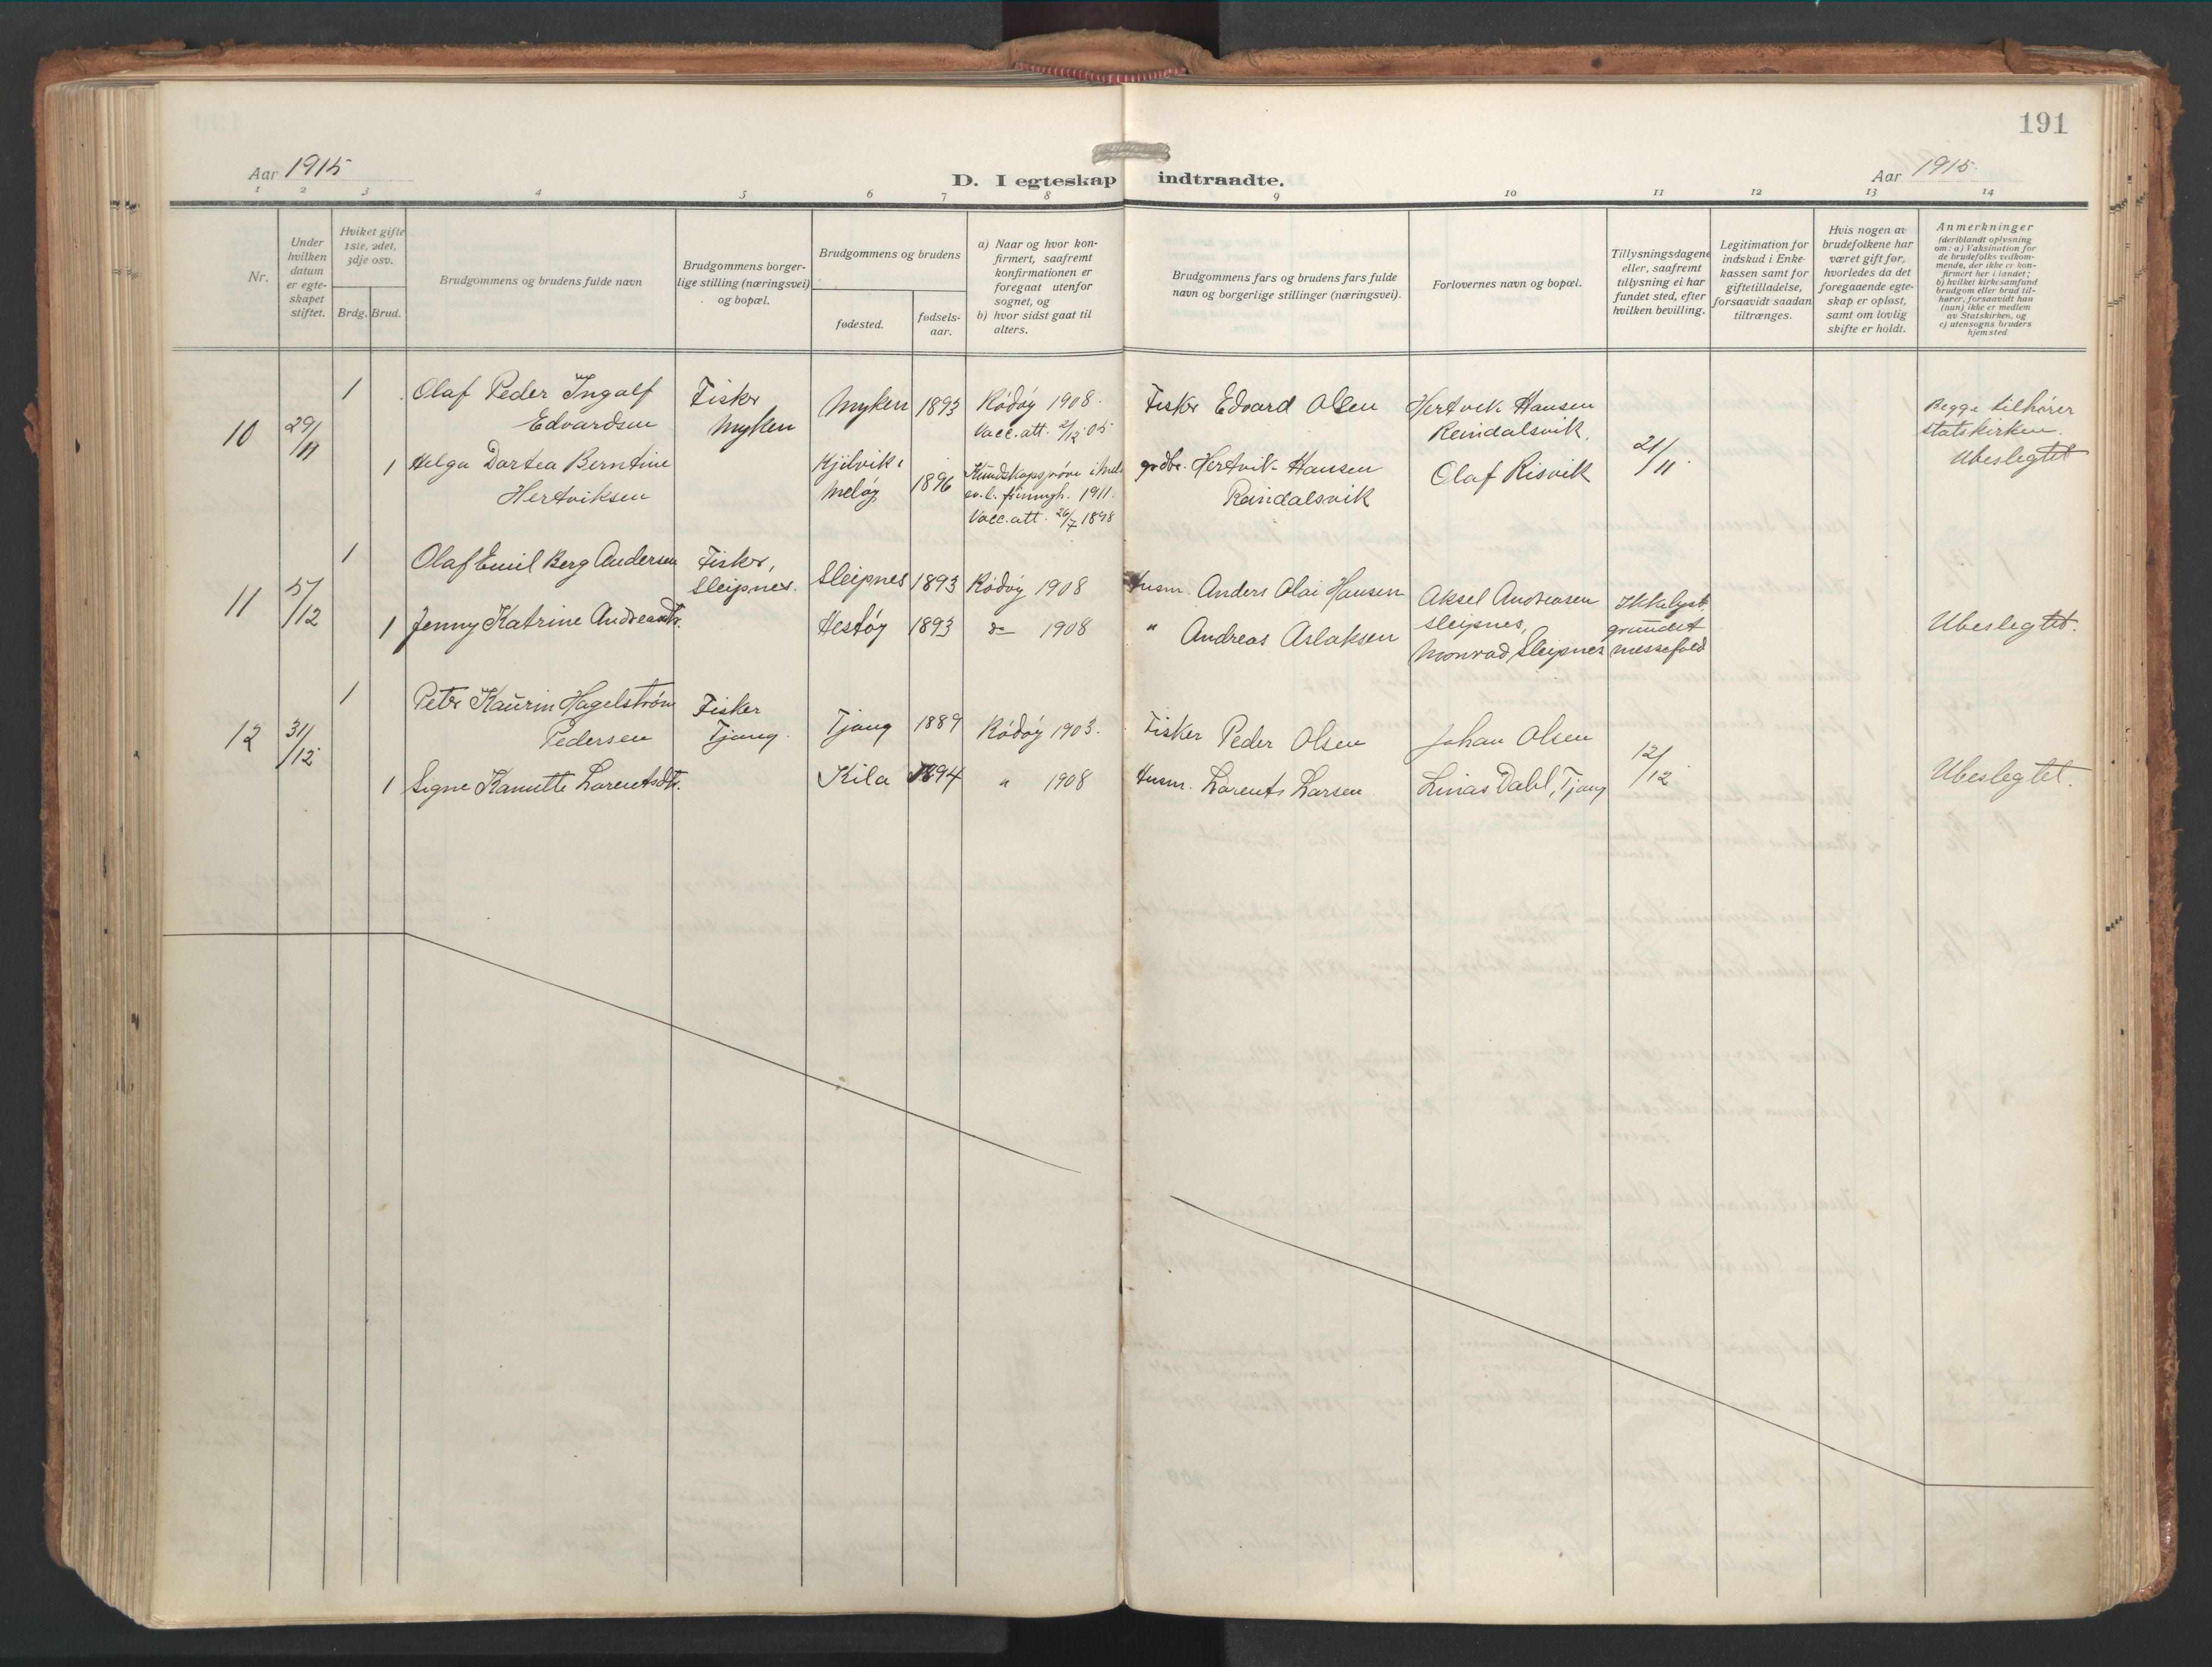 191
Aar 1915
D. I egteskap indtraadte.
Aar 1915.
1 2 3 4 5 6 7 8 9 10 11 12 13 14
Nr.
Under hvilken datum er egte-skapet stiftet.
Hviket gifte 1ste, 2det, 3dje osv.
Brdg. Brud.
Brudgommens og brudens fulde navn
Brudgommens borger-lige stilling (næringsvei) og bopæl.
Brudgommens og brudens
fødested.
fødsels-aar.
a) Naar og hvor kon-firmert, saafremt konfirmationen er foregaat utenfor sognet, og
b) hvor sidst gaat til alters.
Brudgommens fars og brudens fars fulde navn og borgerlige stillinger (næringsvei).
Forlovernes navn og bopæl.
Tillysningsdagene eller, saafremt tillysning ei har fundet sted, efter hvilken bevilling.
Legitimation for indskud i Enke-kassen samt for giftetilladelse, forsaavidt saadan tiltrænges.
Hvis nogen av brudefolkene har været gift før, hvorledes da det foregaaende egte-skap er opløst, samt om lovlig skifte er holdt.
Anmerkninger
(deriblandt oplysning om: a) Vaksination for de brudefolks vedkom-mende, der ikke er kon-firmert her i landet; b) hvilket kirkesamfund brudgom eller brud til-hører, forsaavidt han (hun) ikke er medlem av Statskirken, og c) utensogns bruders hjemsted
10 29/11
1 Olaf Peder Ingolf Edvardsen
Fisker Myken
Myken 1893
Rödöy 1908.
Vacc. att. 2/12 05
Fisker Edvard Olsen
Hertvik Hansen Reindalsvik.
21/11.
Begge tilhører statskirken.
Ubeslegtet
1 Helga Dortea Berntine Hertviksen
Kjilvik i Meløy 1896
Kundskapsprøve i Mel. ev. l. frimgh. 1911.
Vacc. att. 26/7 1898
grdbr. Hertvik Hansen Reindalsvik
Olaf Risvik
11 5/12
1 Olaf Emil Berg Andersen
Fisker, Sleipnes.
Sleipnes 1893
Rödöy 1908
Husm. Anders Olai Hansen
Aksel Andreasen Sleipnes,
Ikke lyst, grundet messefald
Ubeslegtet.
1 Jenny Katrine Andreasdtr.
Hestöy 1893
do 1908
" Andreas Aslaksen
Monrad Sleipnes
12 31/12
1 Peter Kaurin Hagelstrøm Pedersen
Fisker Tjong.
Tjong 1889
Rödöy 1903.
Fisker Peder Olsen
Johan Olsen
12/12
Ubeslegtet.
1 Signe Kanutte Larentsdtr.
Kila 1894
" 1908
Husm. Larents Larsen
Linas Dahl, Tjong